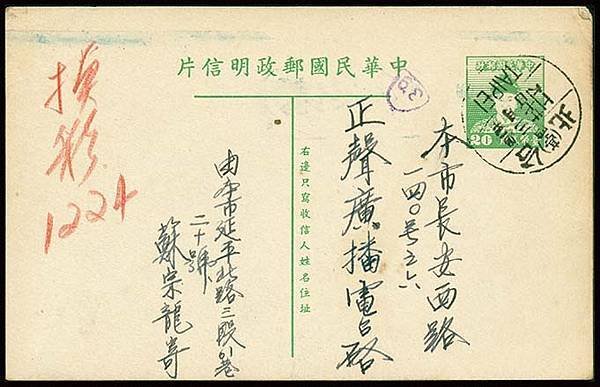 中華民國郵政明信片
20
TAIPEI
本市長安西路
一四〇号之六
正聲廣播電台啓
右邊只寫收信人姓名住址
由本市延平北路三段巷
二十號
蘇宗龍寄
彩